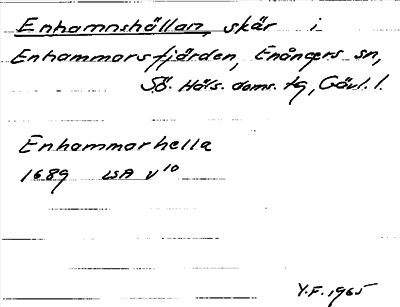 Enhamnshällan, skär i
Enhammarsfjärden, Enångers sn,
Sö. Häls. doms. tg, Gävl. l.
Enhammarhella
1689 LSA V 10
Y.F. 1965